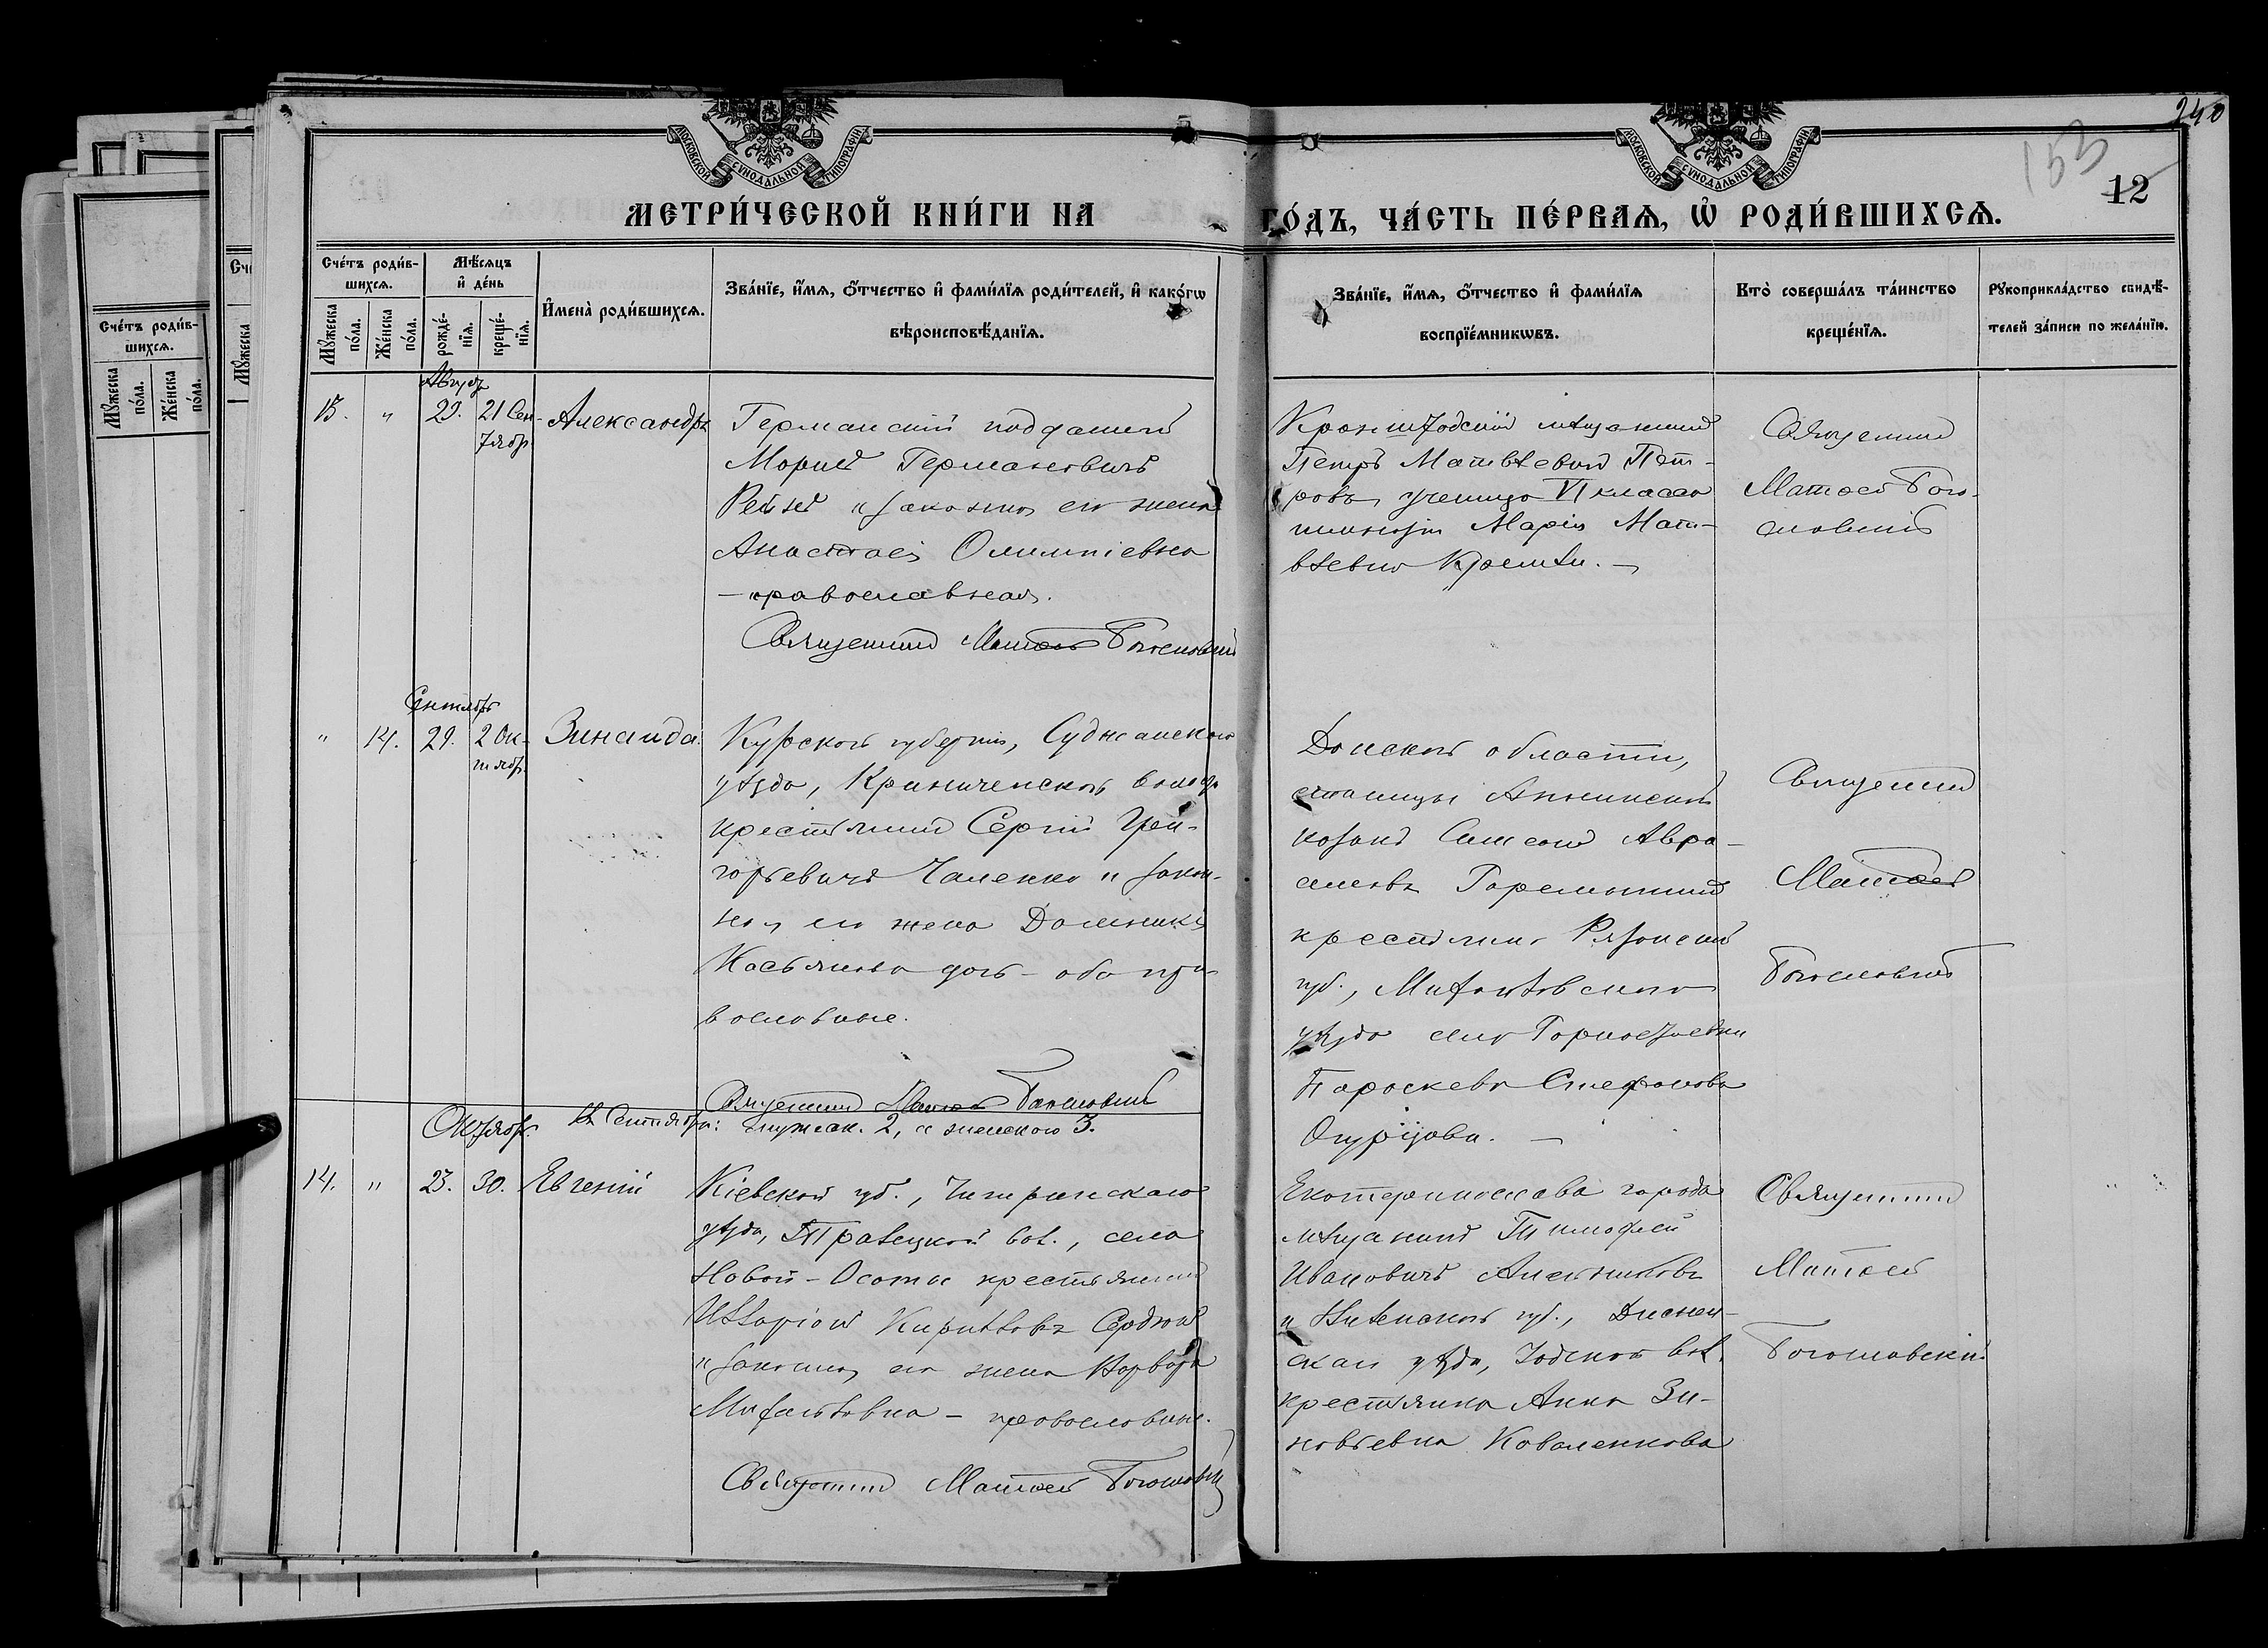 240
153
12
МОСКОВСКОЙ СѴНОДАЛЬНОЙ ТИПОГРАФІИ
МОСКОВСКОЙ СѴНОДАЛЬНОЙ ТИПОГРАФІИ
МЕТРИ́ЧЕСКОЙ КНИ́ГИ НА ГО́ДЪ, ЧА́СТЬ ПЕ́РВАѦ, Ѡ҆ РОДИ́ВШИХСѦ.
Сче́тъ роди́в-
шихсѧ.
Мꙋ́жеска по́ла.
Же́нска по́ла.
Мѣ́сѧцъ
и҆ де́нь
рожде́-
нїѧ.
креще́-
нїѧ.
И҆мена̀ роди́вшихсѧ.
Зва́нїе, и҆́мѧ, ѻ҆́тчество и҆ фами́лїѧ роди́телей, и҆ како́гѡ
вѣроисповѣ́данїѧ.
Зва́нїе, и҆́мѧ, ѻ҆́тчество и҆ фами́лїѧ
воспрїе́мникѡвъ.
Кто̀ соверша́лъ та́инство
креще́нїѧ.
Рꙋкоприкла́дство свидѣ́-
телей за́писи по жела́нїю.
Сче́тъ роди́в-
шихсѧ.
Мꙋ́жеска по́ла.
Же́нска по́ла.
Августъ
13. " 29. 21 Сен-
тябр.
Александръ
Германскій подданный
Морицъ Германовичъ
и законная его жена
Анастасія Олимпіевна
– православная.
Священникъ Матѳей Богословскій
Кронштадскій мѣщанинъ
Петръ Матвѣевичъ Пет-
ровъ, ученица VI класса
гимназіи Марія Мат-
вѣевна
Священникъ
Матѳей Бого-
словскій
Сентябрь
" 14. 29. 2 Ок-
тябр.
Зинаида.
Курской губерніи, Суджанскаго
уѣзда, Криниченской волости
крестьянинъ Сергій Григ-
горьевичъ Чаленко и закон-
ная его жена Домника
Касьянова дочь – оба пра-
вославные.
Священникъ Матѳей Богословскій
Донской области,
станицы Аннинской
козакъ Самсонъ Авра-
амовъ Горемыкинъ
крестьянка Рязанской
губ., Михайловскаго
уѣзда села
Параскева Стефанова
Огурцова. –
Священникъ
Матѳей
Богословскій
Въ Сентябрѣ: мужеск. 2, а женскаго 3.
Октябрь.
14. " 23. 30. Евгеній
Кіевской губ., Чигиринскаго
уѣзда, вол., села
Новой-Осоты крестьянинъ
Илларіонъ Кирилловъ Сердюкъ
и законная его жена Варвара
Михайловна – православные.
Священникъ Матѳей Богословскій
Екатеринослава города
мѣщанинъ Тимофей
Ивановичъ
и Виленской губ., Диснен-
скаго уѣзда, вол.
крестьянка Анна Зи-
новьевна Коваленкова
Священникъ
Матѳей
Богословскій